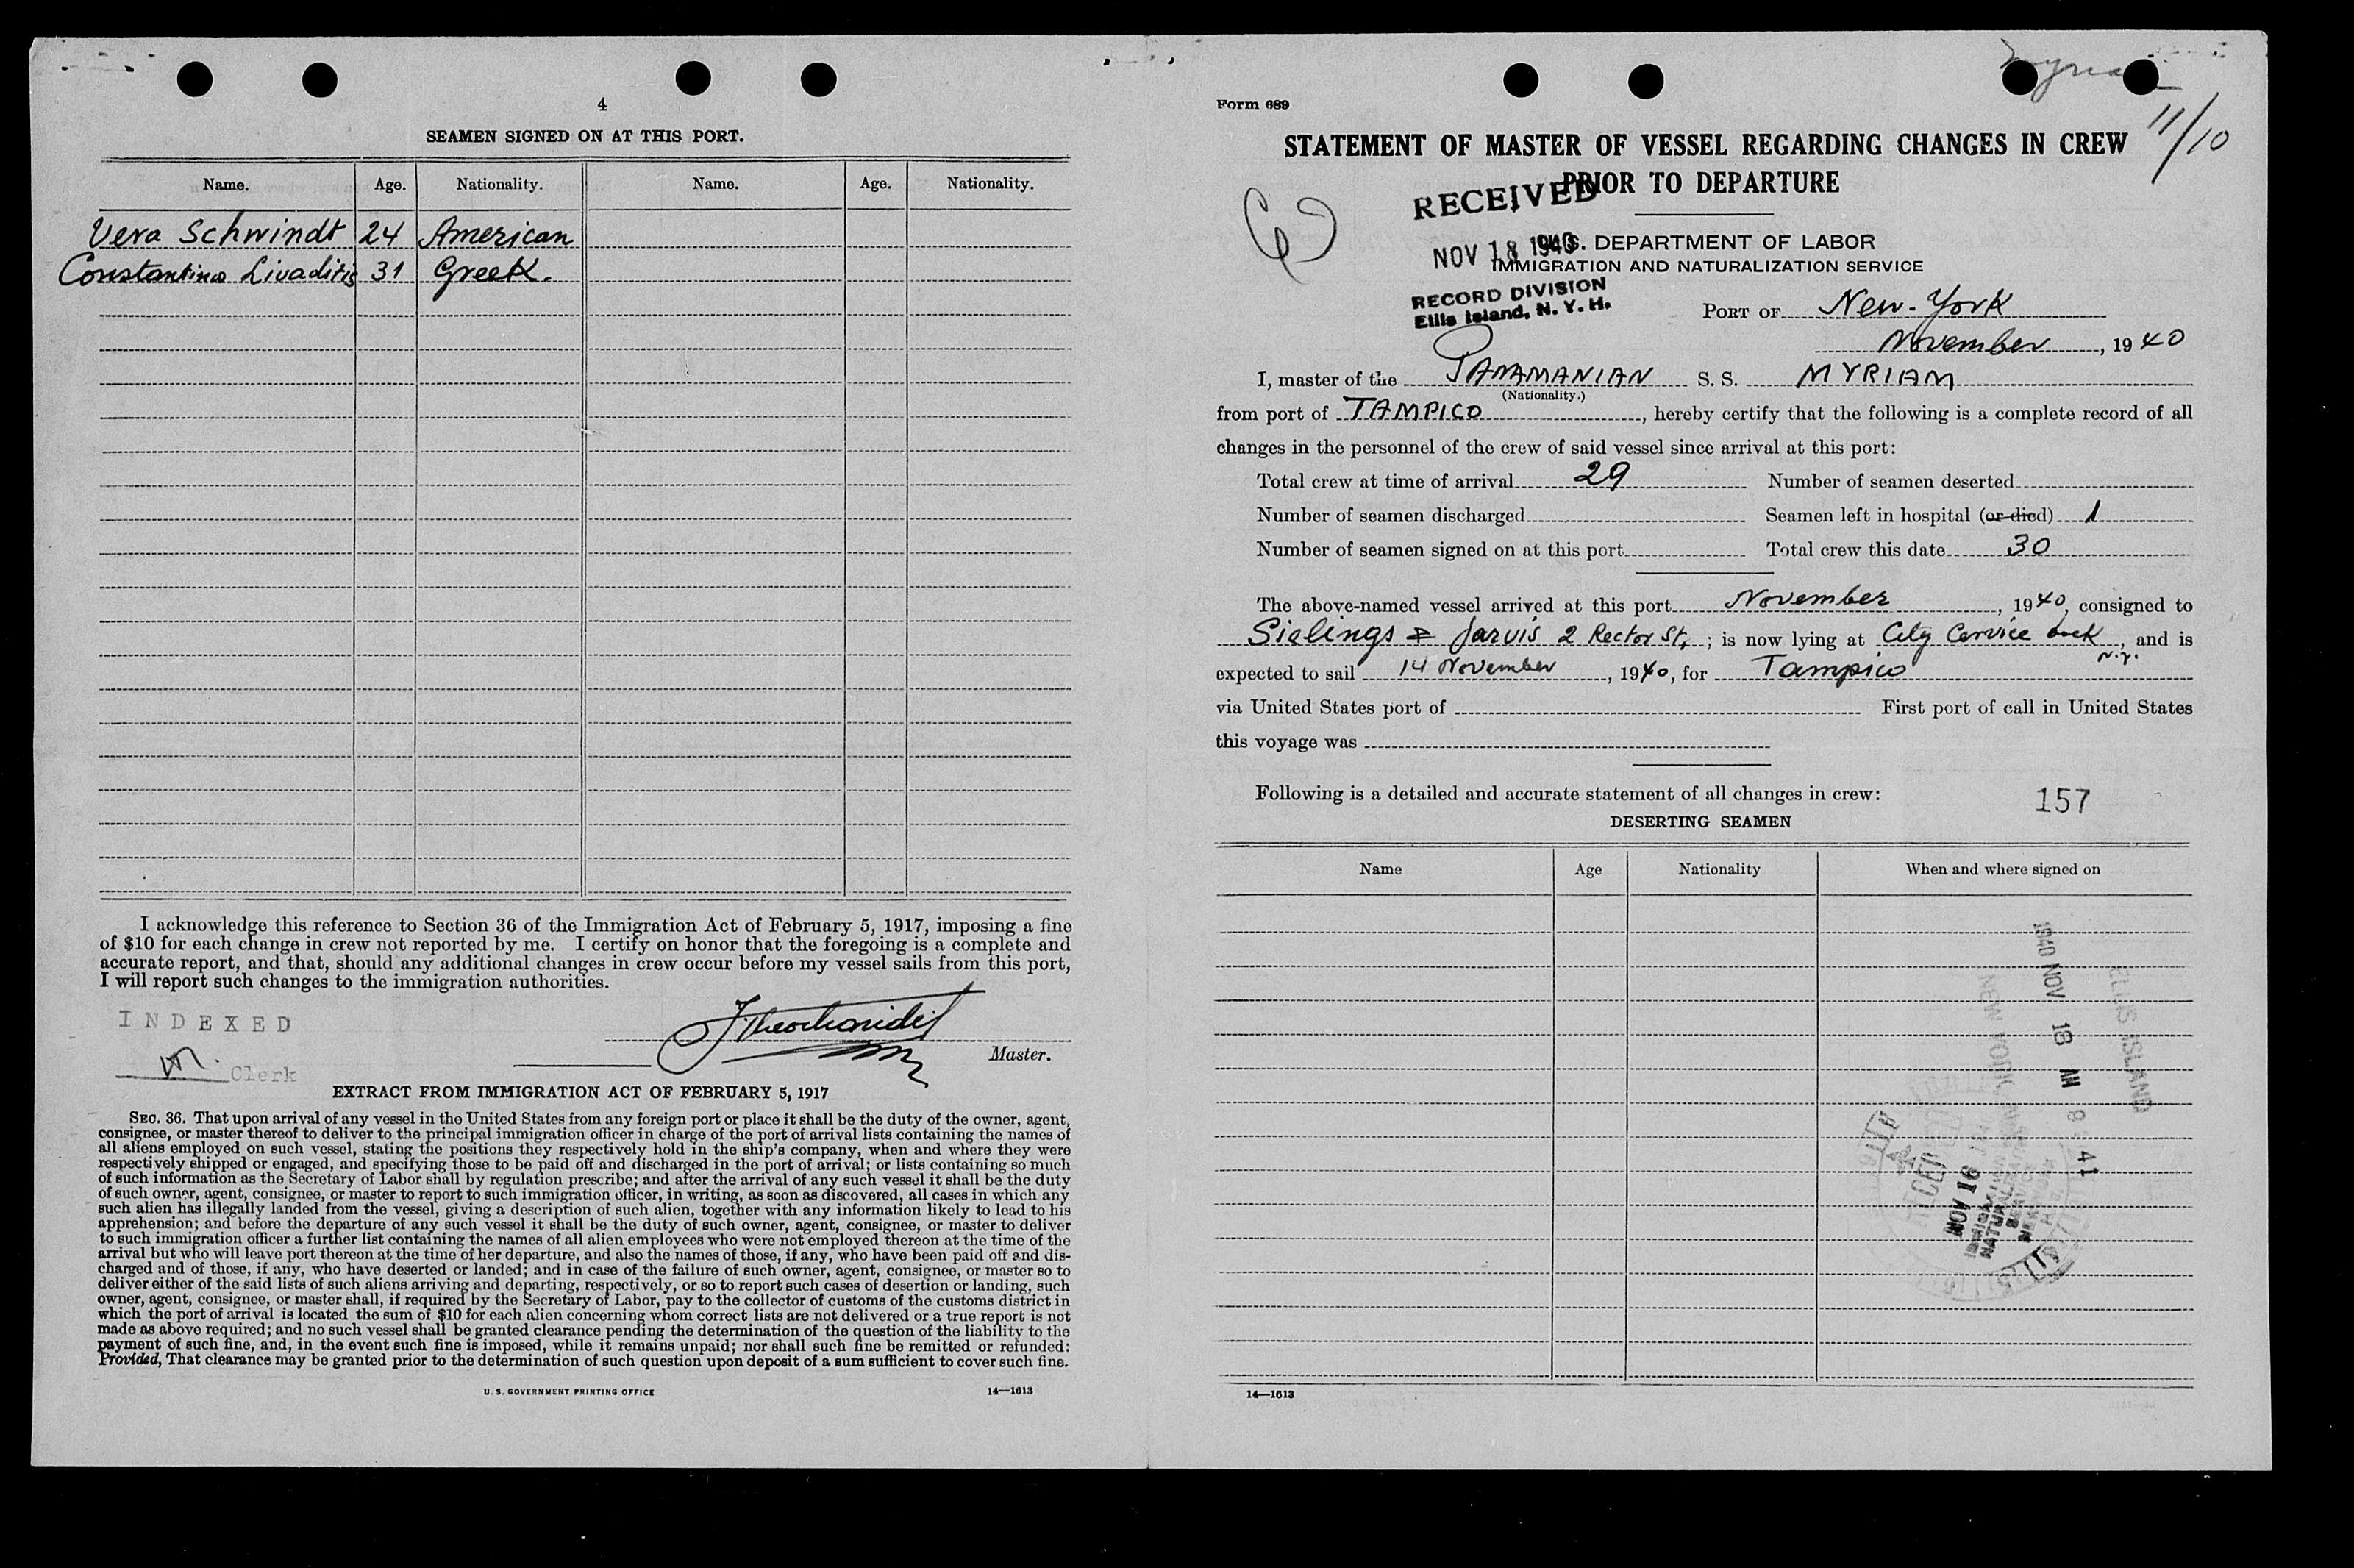 4
SEAMEN SIGNED ON AT THIS PORT.
Name. Age. Nationality. Name. Age. Nationality.
Vera Schwindt 24 American
Constantinos Livaditis 31 Greek.
I acknowledge this reference to Section 36 of the Immigration Act of February 5, 1917, imposing a fine
of $10 for each change in crew not reported by me. I certify on honor that the foregoing is a complete and
accurate report, and that, should any additional changes in crew occur before my vessel sails from this port,
I will report such changes to the immigration authorities.
INDEXED
Master.
Clerk
EXTRACT FROM IMMIGRATION ACT OF FEBRUARY 5, 1917
SEC. 36. That upon arrival of any vessel in the United States from any foreign port or place it shall be the duty of the owner, agent,
consignee, or master thereof to deliver to the principal immigration officer in charge of the port of arrival lists containing the names of
all aliens employed on such vessel, stating the positions they respectively hold in the ship's company, when and where they were
respectively shipped or engaged, and specifying those to be paid off and discharged in the port of arrival; or lists containing so much
of such information as the Secretary of Labor shall by regulation prescribe; and after the arrival of any such vessel it shall be the duty
of such owner, agent, consignee, or master to report to such immigration officer, in writing, as soon as discovered, all cases in which any
such alien has illegally landed from the vessel, giving a description of such alien, together with any information likely to lead to his
apprehension; and before the departure of any such vessel it shall be the duty of such owner, agent, consignee, or master to deliver
to such immigration officer a further list containing the names of all alien employees who were not employed thereon at the time of the
arrival but who will leave port thereon at the time of her departure, and also the names of those, if any, who have been paid off and dis-
charged and of those, if any, who have deserted or landed; and in case of the failure of such owner, agent, consignee, or master so to
deliver either of the said lists of such aliens arriving and departing, respectively, or so to report such cases of desertion or landing, such
owner, agent, consignee, or master shall, if required by the Secretary of Labor, pay to the collector of customs of the customs district in
which the port of arrival is located the sum of $10 for each alien concerning whom correct lists are not delivered or a true report is not
made as above required; and no such vessel shall be granted clearance pending the determination of the question of the liability to the
payment of such fine, and, in the event such fine is imposed, while it remains unpaid; nor shall such fine be remitted or refunded:
Provided, That clearance may be granted prior to the determination of such question upon deposit of a sum sufficient to cover such fine.
U. S. GOVERNMENT PRINTING OFFICE 14—1613
Myriam
11/10
Form 689
STATEMENT OF MASTER OF VESSEL REGARDING CHANGES IN CREW
PRIOR TO DEPARTURE
RECEIVED
NOV 18 1940
RECORD DIVISION
Ellis Island, N. Y. H.
U. S. DEPARTMENT OF LABOR
IMMIGRATION AND NATURALIZATION SERVICE
PORT OF New-York
November, 1940
I, master of the PANAMANIAN S. S. MYRIAM
(Nationality.)
from port of TAMPICO, hereby certify that the following is a complete record of all
changes in the personnel of the crew of said vessel since arrival at this port:
Total crew at time of arrival 29 Number of seamen deserted
Number of seamen discharged Seamen left in hospital (or died) 1
Number of seamen signed on at this port Total crew this date 30
The above-named vessel arrived at this port November, 1940, consigned to
Sielings & Jarvis 2 Rector St,; is now lying at City Cervice Dock N.Y., and is
expected to sail 14 November, 1940, for Tampico
via United States port of First port of call in United States
this voyage was
Following is a detailed and accurate statement of all changes in crew:
157
DESERTING SEAMEN
Name Age Nationality When and where signed on
ELLIS ISLAND
1940 NOV 18 AM 8 41
NEW YORK
RECEIVED
NOV 16
14—1613